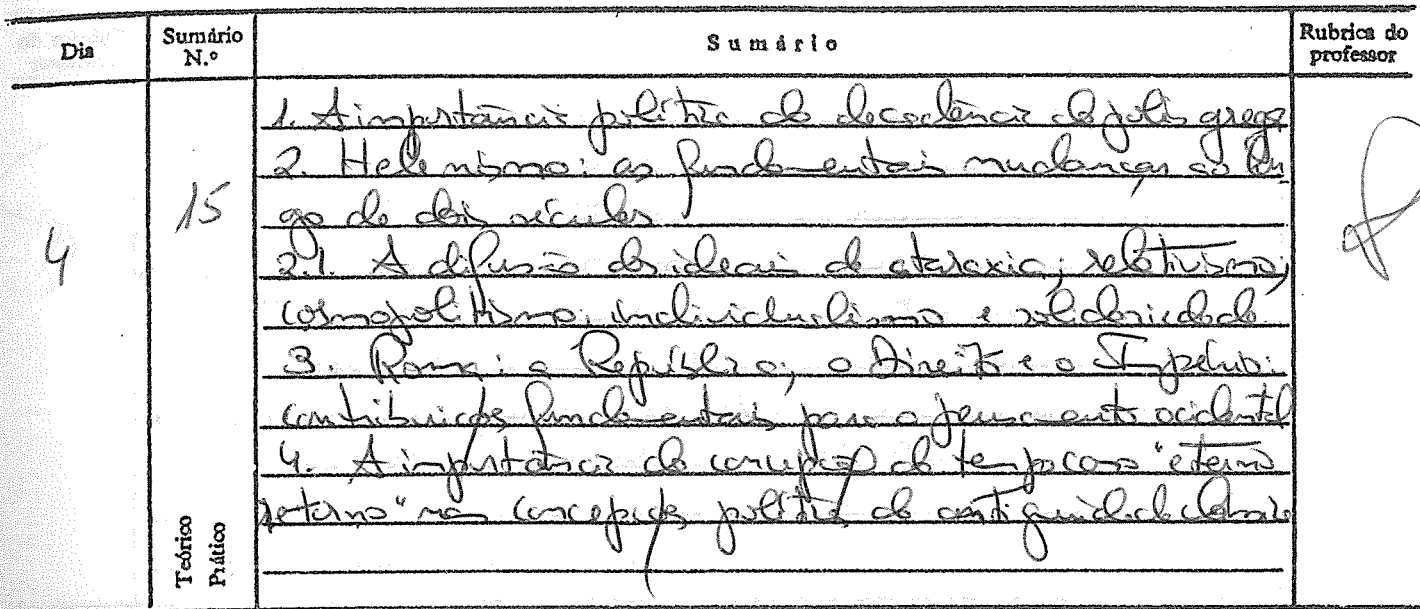 Dia
Sumário N.º
Sumário
Rubrica do professor
4
15
1. A importância política da decadência da polis grega
2. Helenismo: as fundamentais mudanças ao lon
go de dois séculos
2.1. A difusão dos ideais de ataraxia; relativismo;
cosmopolitismo; individualismo e solidariedade
3. Roma: a República; o Direito e o Império:
contribuições fundamentais para o pensamento ocidental
4. A importância da concepção do tempo como "eterno
retorno" nas concepções políticas da antiguidade clássica
Teórico
Prático